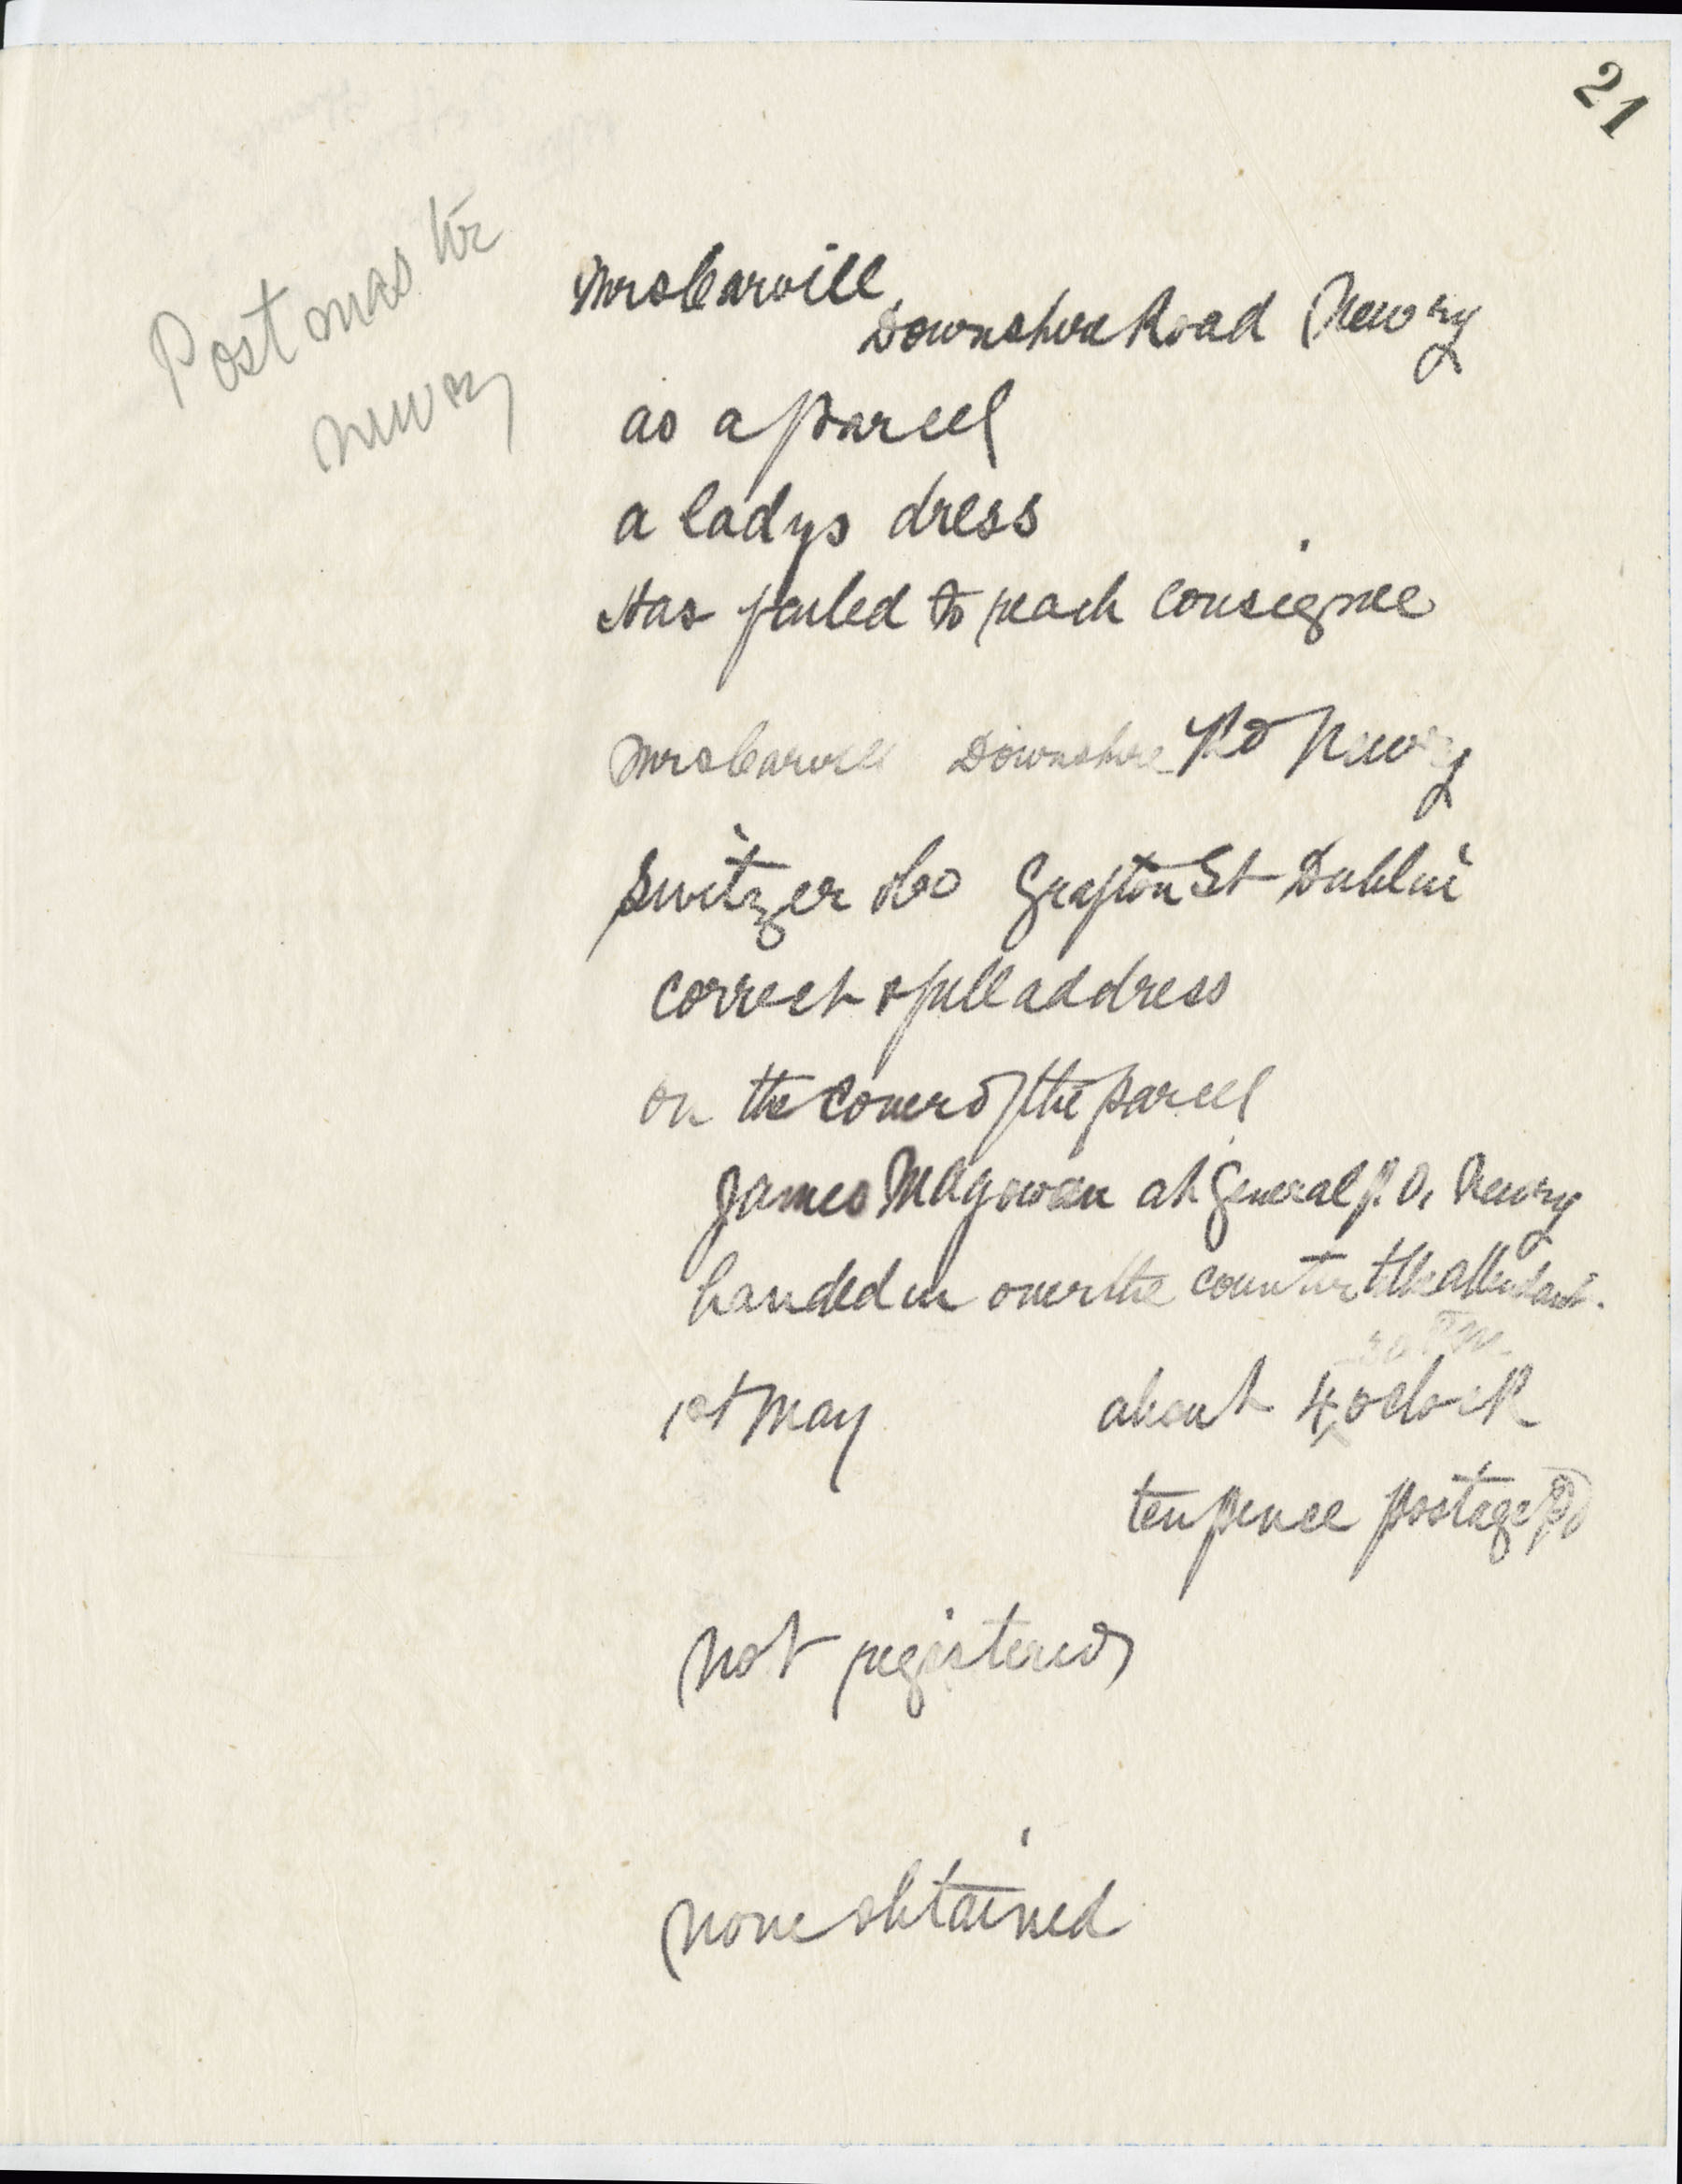 21
Postmaster
Newry
Mrs Carvill,
Downshire Road Newry
as a parcel
a ladys dress
Has failed to reach consignee
Mrs Carvill Downshire Rd Newry
Switzer & Co Grafton St Dublin
correct & full address
on the cover of the parcel
James Magowan at General P.O. Newry
handed in over the counter to the attendant.
30 PM
1st May about 4 oclock
tenpence postage Pd
not registered
none obtained